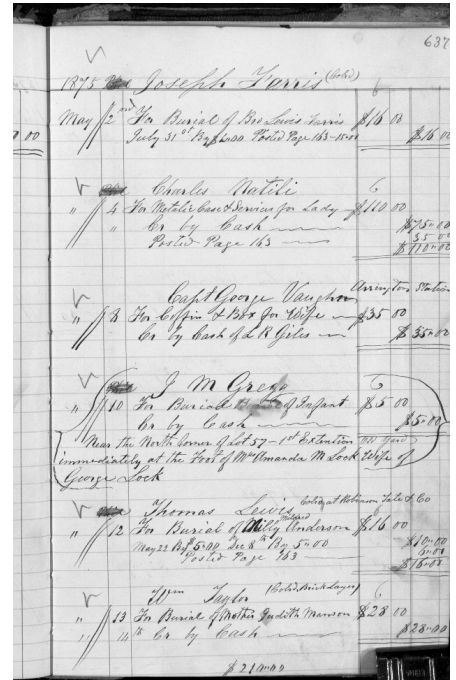 637
1875 Joseph Farris (Cold)
May 2nd For Burial of Bro Lewis Farris $16 00
July 31st By $1.00 Posted Page 163 - 15.00 $16 00
Charles Natili
" 4 For Metalic Case & Services for Lady $110 00
" Cr by Cash $75-00
Posted Page 163 35 00
$110-00
Capt George Vaughn Arrington Station
" 8 For Coffin & Box for Wife $35 00
Cr by Cash of L R Giles $35-00
J M Grego
" 10 For Burial of Infant $5 00
Cr by Cash $5-00
Near the North Corner of Lot 57 - 1st Extention Old Yard
immediately at the Foot of Mrs Amanda M Lock Wife of
George Lock
Thomas Lewis Cold at Robinson Tate & Co
Mildred
" 12 For Burial of Milly Anderson $16 00
May 22 By $5-00 Dec 8th By 5-00 $10-00
Posted Page 163 6-00
$16-00
Wm Taylor (Cold Brick Layer)
" 13 For Burial of Mother Judith Manson $28 00
" 14th Cr by Cash $28-00
$210-00